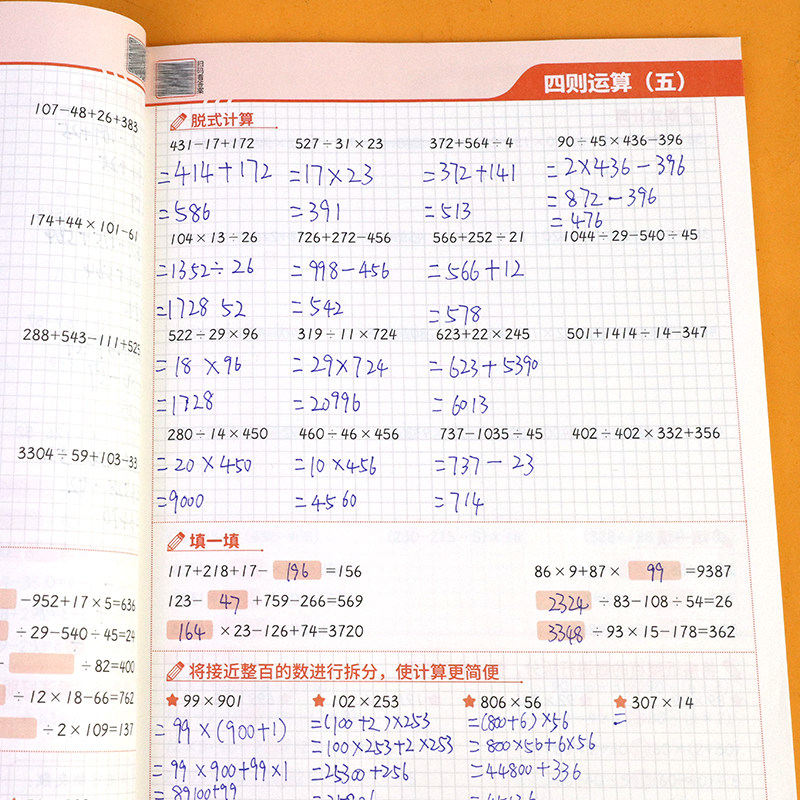 扫码看答案
四则运算（五）
107-48+26+383
174+44×101-61
288+543-111+525
3304÷59+103-33
-952+17×5=636
÷29-540÷45=24
÷82=400
÷12×18-66=762
÷2×109=137
脱式计算
431-17+172 527÷31×23 372+564÷4 90÷45×436-396
=414+172 =17×23 =372+141 =2×436-396
=586 =391 =513 =872-396
=476
104×13÷26 726+272-456 566+252÷21 1044÷29-540÷45
=1352÷26 =998-456 =566+12
=1728 52 =542 =578
522÷29×96 319÷11×724 623+22×245 501+1414÷14-347
=18×96 =29×724 =623+5390
=1728 =20996 =6013
280÷14×450 460÷46×456 737-1035÷45 402÷402×332+356
=20×450 =10×456 =737-23
=9000 =4560 =714
填一填
117+218+17-196=156 86×9+87×99=9387
123-47+759-266=569 2324÷83-108÷54=26
164×23-126+74=3720 3348÷93×15-178=362
将接近整百的数进行拆分，使计算更简便
★99×901 ★102×253 ★806×56 ★307×14
=99×(900+1) =(100+2)×253 =(800+6)×56 =
=100×253+2×253 =800×56+6×56
=99×900+99×1 =25300+256 =44800+336
=89100+99